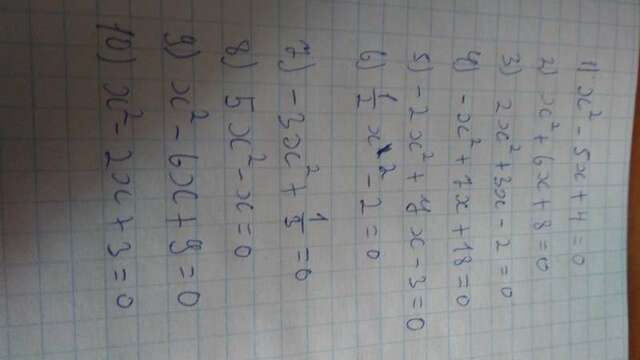 1) x² - 5x + 4 = 0
2) x² + 6x + 8 = 0
3) 2x² + 3x - 2 = 0
4) -x² + 7x + 18 = 0
5) -2x² + 7x - 3 = 0
6) 1/2 x² - 2 = 0
7) -3x² + 1/3 = 0
8) 5x² - x = 0
9) x² - 6x + 9 = 0
10) x² - 2x + 3 = 0